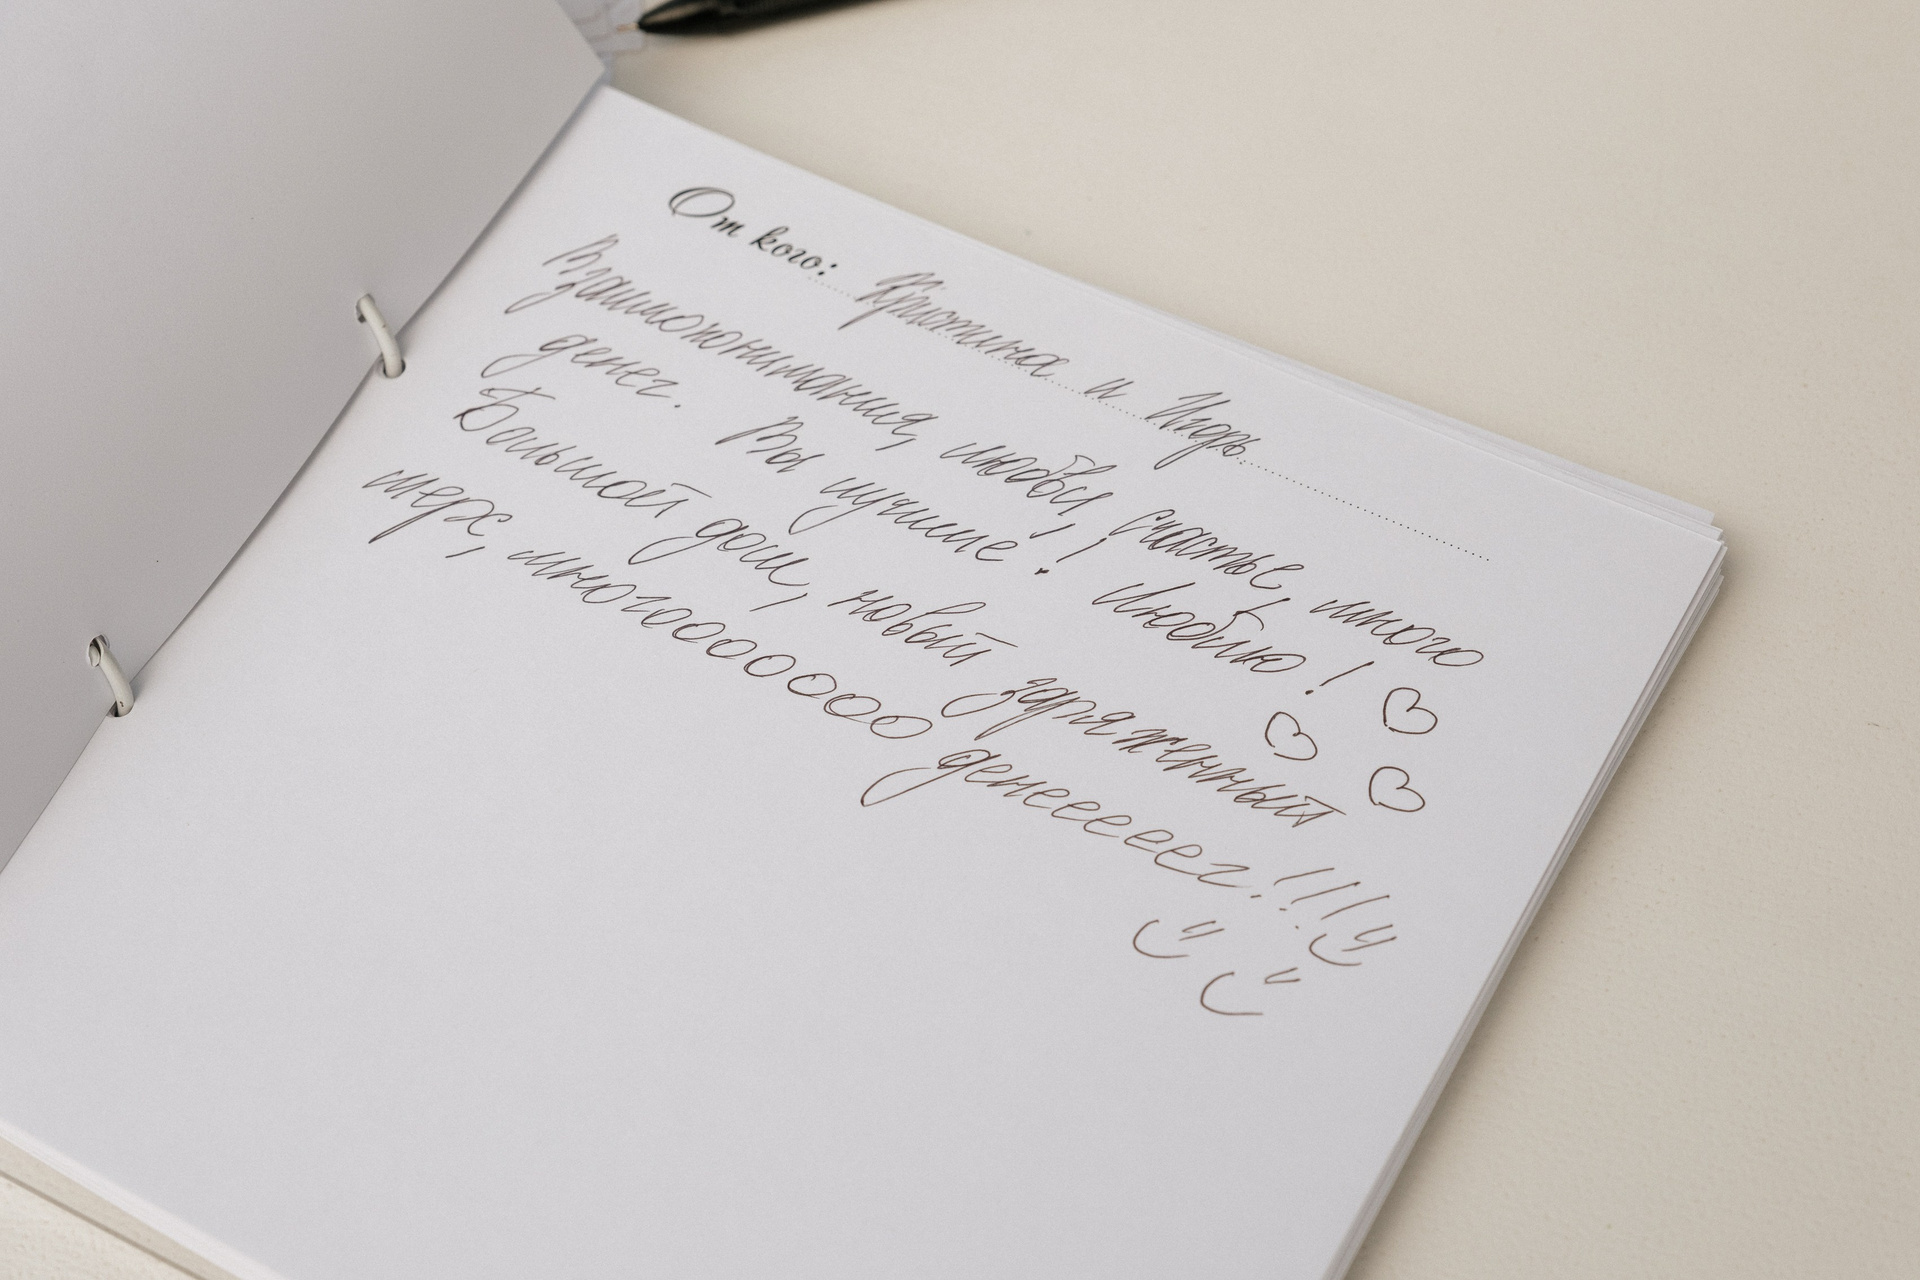 От кого: Кристина и Игорь
Взаимопонимания, любви, счастье, много
денег. Вы лучшие! Люблю!
Большой дом, новый заряженный
мерс, многооооооооо денеееееег!!!